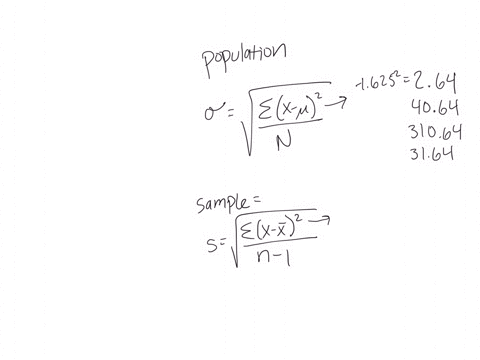 population
σ = √(Σ(x-μ)² / N) →
-1.625² = 2.64
40.64
310.64
31.64
sample =
s = √(Σ(x-x̄)² / n-1) →